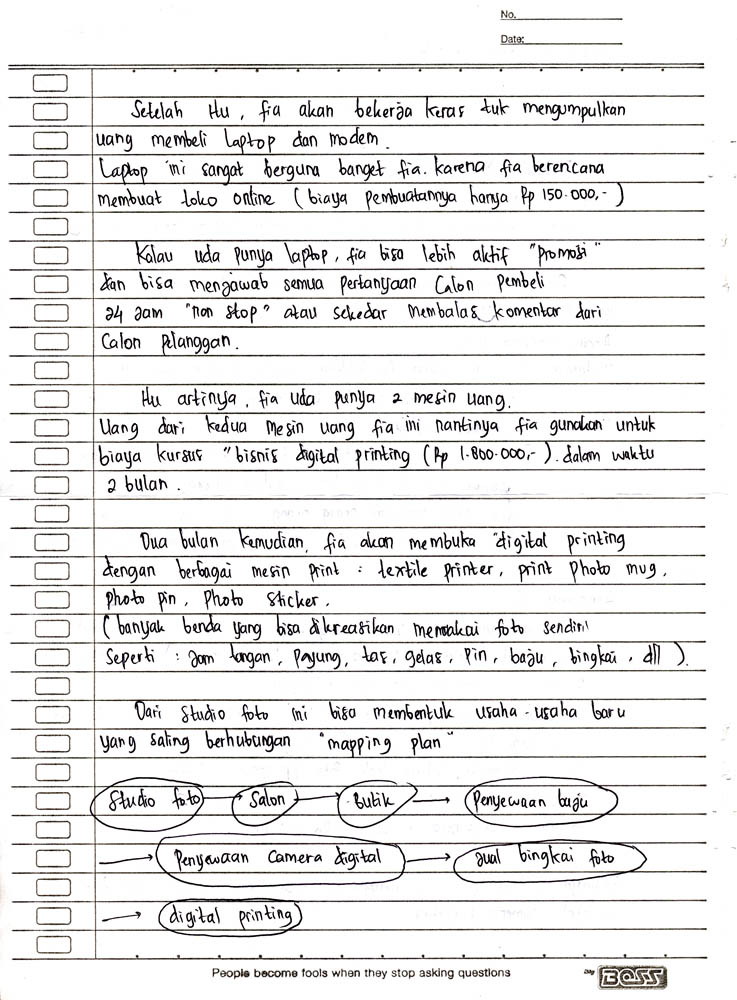 No.
Date:
Setelah itu, fia akan bekerja keras tuk mengumpulkan
uang membeli laptop dan modem.
Laptop ini sangat berguna banget fia. karena fia berencana
membuat toko online (biaya pembuatannya hanya Rp 150.000,-)
Kalau uda punya laptop, fia bisa lebih aktif "promosi"
dan bisa menjawab semua pertanyaan Calon pembeli
24 jam "non stop" atau sekedar membalas komentar dari
Calon pelanggan.
Itu artinya, fia uda punya 2 mesin uang.
Uang dari kedua mesin uang fia ini nantinya fia gunakan untuk
biaya kursus "bisnis digital printing (Rp 1.800.000,-). dalam waktu
2 bulan.
Dua bulan kemudian, fia akan membuka "digital printing
dengan berbagai mesin print : textile printer, print photo mug,
photo pin, photo sticker.
(banyak benda yang bisa dikreasikan memakai foto sendiri
Seperti : jam tangan, payung, tas, gelas, pin, baju, bingkai, dll).
Dari Studio foto ini bisa membentuk usaha-usaha baru
yang saling berhubungan "mapping plan"
Studio foto → Salon → Butik → Penyewaan baju
→ Penyewaan Camera digital → jual bingkai foto
→ digital printing
People become fools when they stop asking questions
Big BOSS